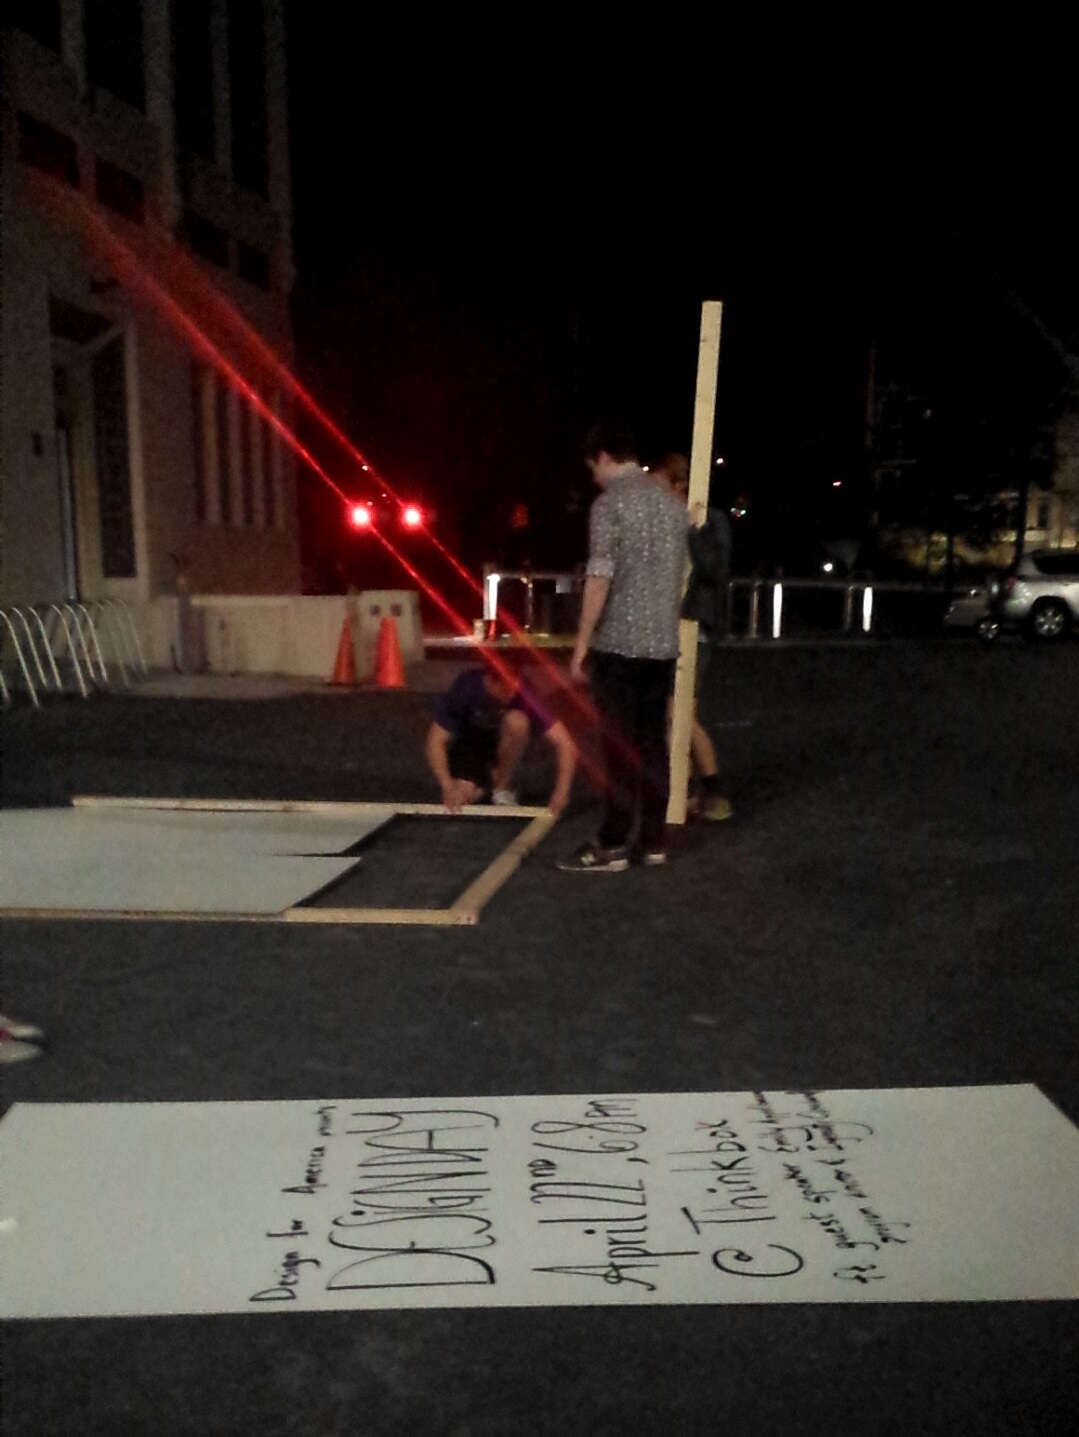 Design for America presents
DESIGNDAY
April 22ND, 6-8pm
@ Thinkbox
ft guest speaker Emily